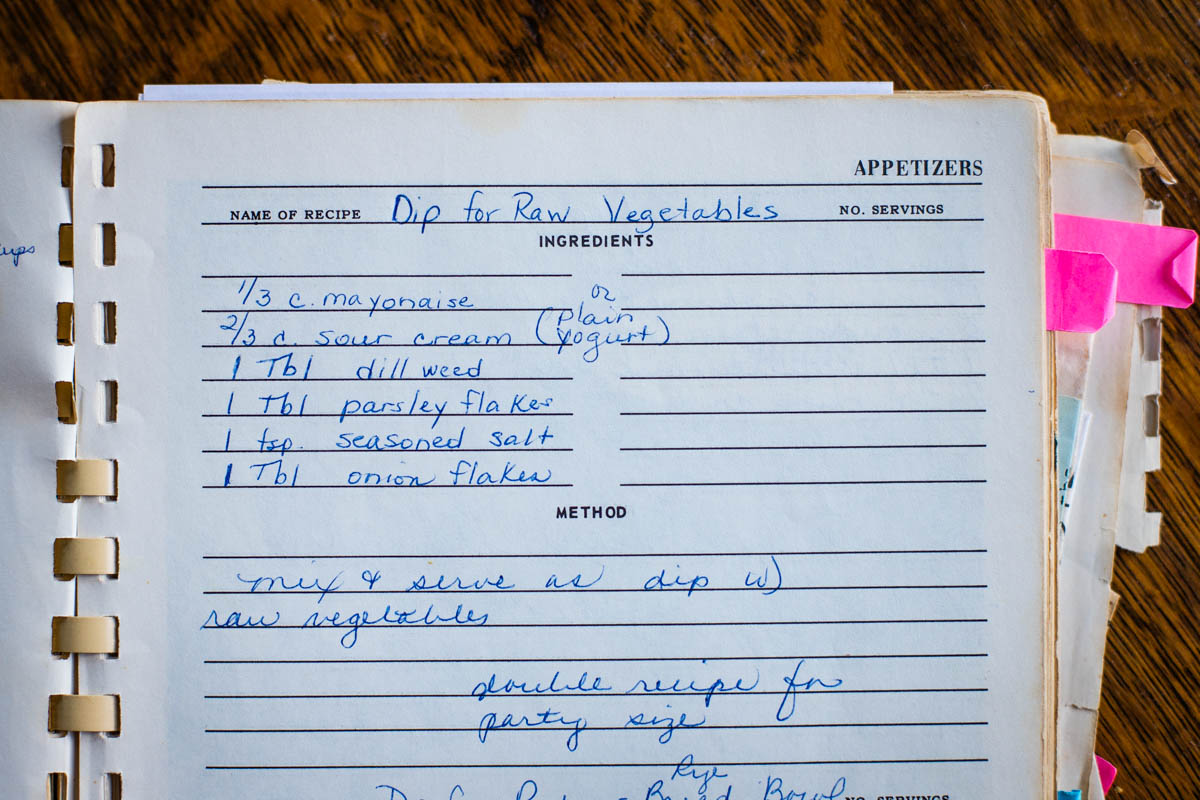 ups
APPETIZERS
NAME OF RECIPE Dip for Raw Vegetables NO. SERVINGS
INGREDIENTS
1/3 c. mayonaise
2/3 c. sour cream (or plain yogurt)
1 Tbl dill weed
1 Tbl parsley flakes
1 tsp. seasoned salt
1 Tbl onion flakes
METHOD
mix & serve as dip w/
raw vegetables
double recipe for
party size
Rye
Bread Bowl NO. SERVINGS